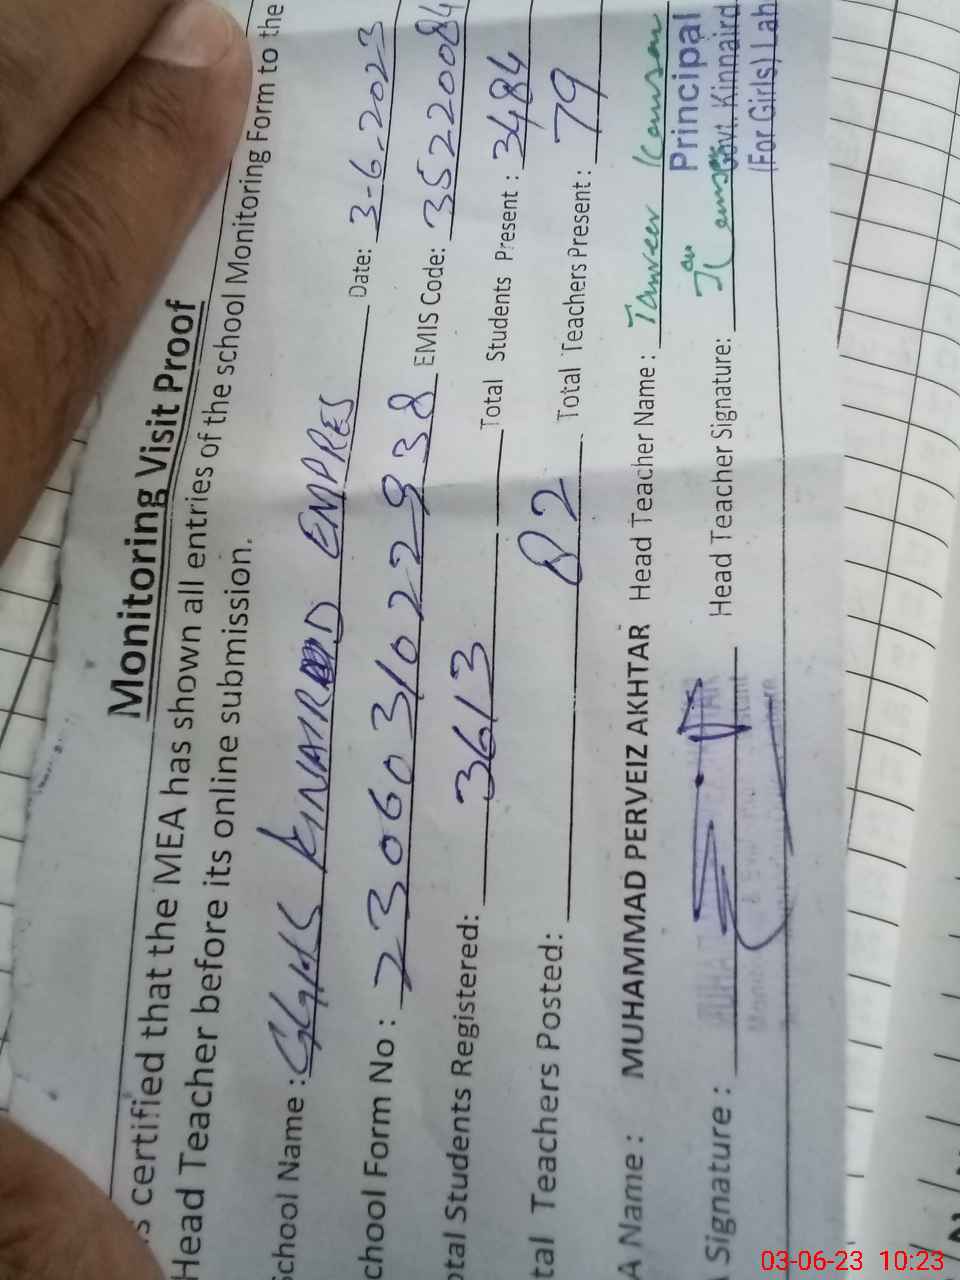 Monitoring Visit Proof
is certified that the MEA has shown all entries of the school Monitoring Form to the
Head Teacher before its online submission.
School Name : GGHS KINAIRD EMPRES Date: 3-6-2023
chool Form No : 2306031022938 EMIS Code: 35220084
otal Students Registered: 3613 Total Students Present : 3484
tal Teachers Posted: 82 Total Teachers Present : 79
A Name : MUHAMMAD PERVEIZ AKHTAR Head Teacher Name : Tanveer Kausar
Signature : Head Teacher Signature:
Principal
Govt. Kinnaird
(For Girls) Lah
03-06-23 10:23